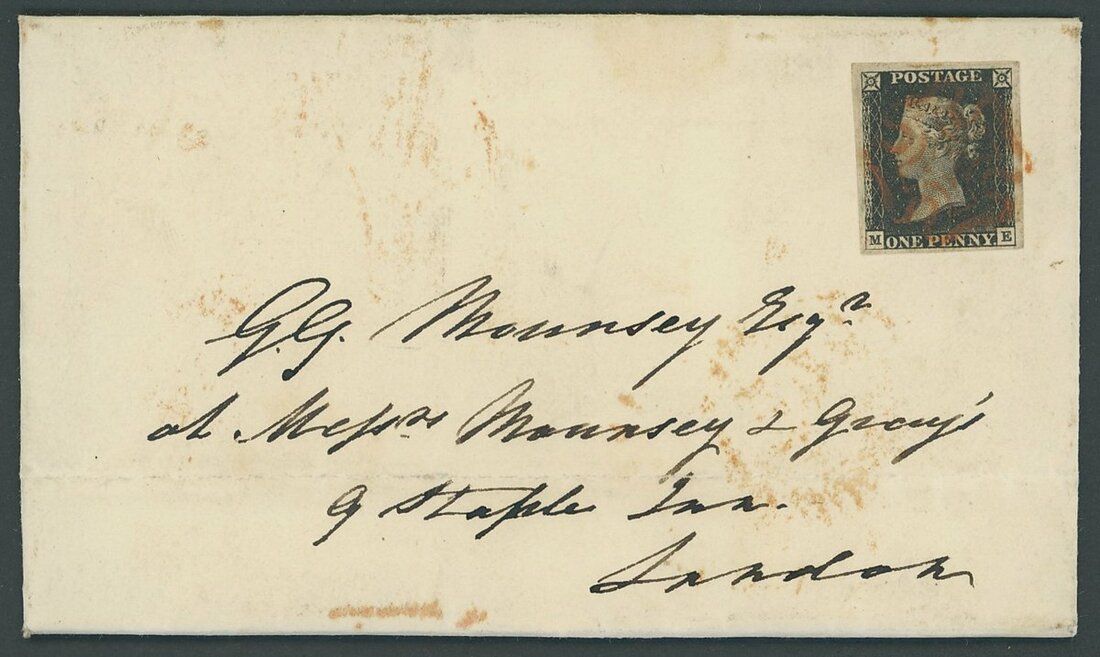 POSTAGE
M ONE PENNY. E
G.G. Mounsey Esqr
at Messrs Mounsey & Gray's
9 Staple Inn.
London